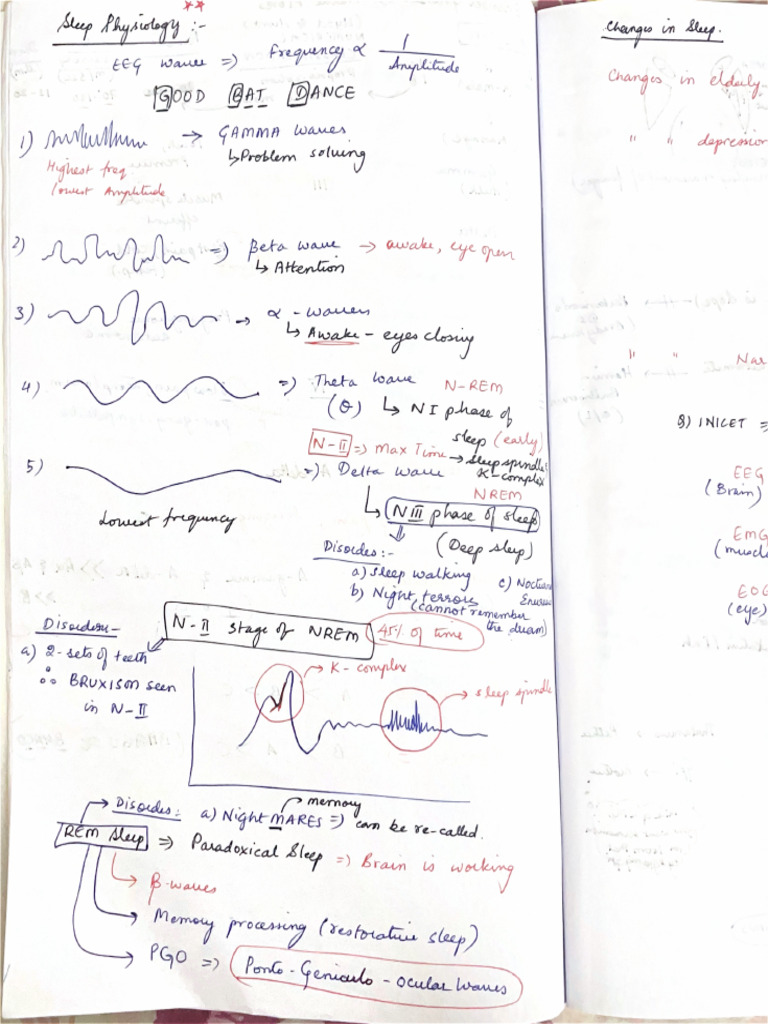 Sleep Physiology :-
EEG waves => frequency ∝ 1 / Amplitude
GOOD BAT DANCE
1) → GAMMA waves
↳ Problem solving
Highest freq
lowest Amplitude
2) => Beta wave → awake, eye open
↳ Attention
3) → α - waves
↳ Awake - eyes closing
4) => Theta wave N-REM
(θ) ↳ N I phase of
sleep (early)
N-II => Max Time → sleep spindle
K-complex
5) => Delta wave
NREM
↳ N III phase of sleep
Lowest frequency
(Deep sleep)
Disordes :-
a) Sleep walking
c) Noctur
Enures
b) Night terrors
(cannot remember
the dream)
N-II stage of NREM 45% of time
Disorders-
a) 2-sets of teeth
∴ BRUXISON seen
in N-II
K-complex
sleep spindle
Disordes: a) Night MARES => can be re-called.
memory
REM Sleep => Paradoxical Sleep => Brain is working
β-waves
Memory processing (restorative sleep)
PGO => Ponto - Geniculo - ocular waves
Changes in Sleep.
Changes in elderly-
" " depression
" " Nar
8) INICET =>
EEG
(Brain)
EMG
(muscle
EOG
(eye)